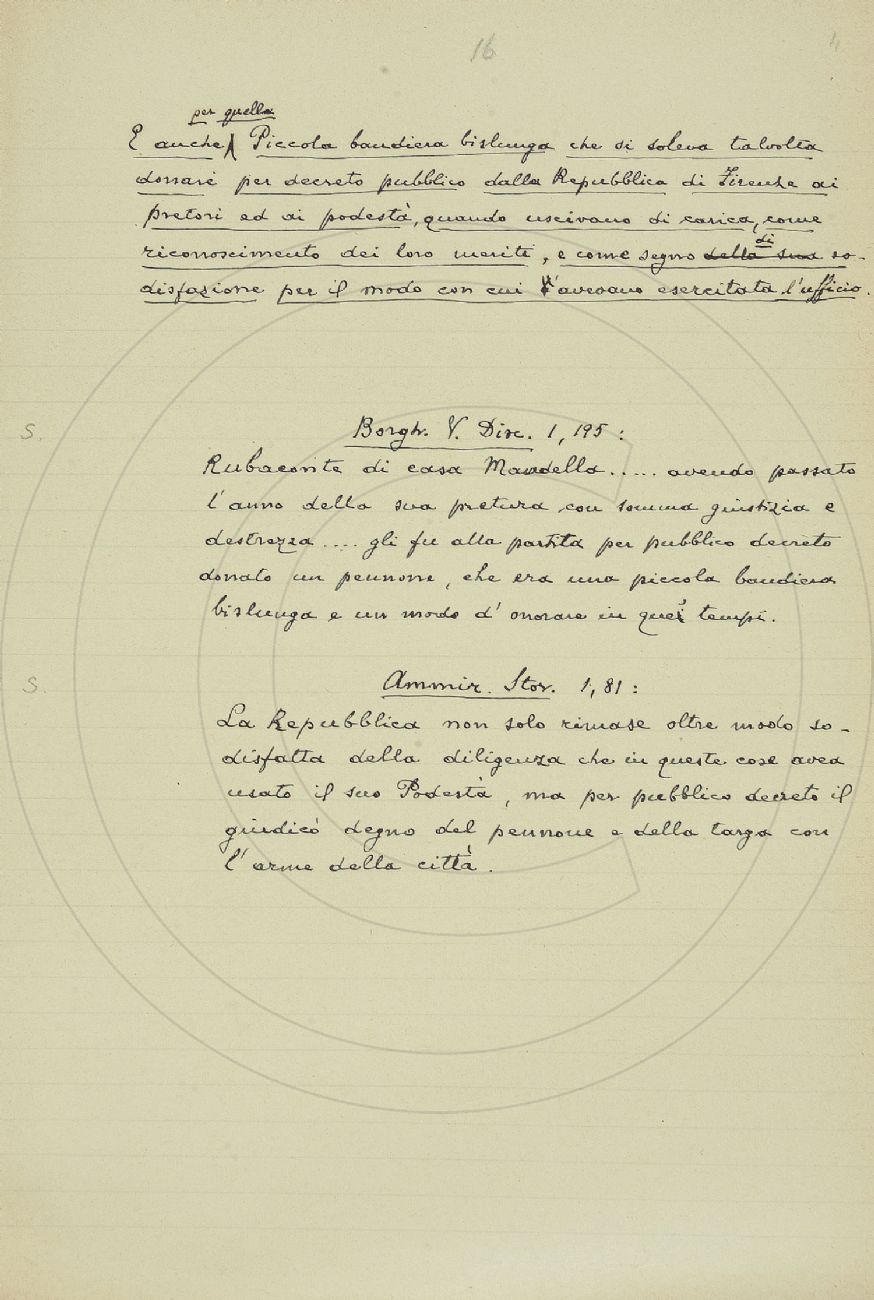 16
4
per quella
E anche Piccola bandiera bislunga che si soleva talvolta
donare per decreto pubblico dalla Repubblica di Firenze ai
pretori ed ai podestà, quando uscivano di carica, come
riconoscimento dei loro meriti, e come segno della sua di so-
disfazione per il modo con cui l'avevano esercitata l'ufficio.
S.
Borgh. V. Disc. 1, 195:
Rubaconte di casa Mandella..... avendo passato
l'anno della sua pretura con somma giustizia e
destrezza.... gli fu alla partita per pubblico decreto
donato un pennone, che era una piccola bandiera
bislunga e un modo d'onorare in quei tempi.
S.
Ammir. Stor. 1, 81:
La Repubblica non solo rimase oltre modo so-
disfatta della diligenza che in queste cose avea
usato il suo Podestà, ma per pubblico decreto il
giudicò degno del pennone e della targa con
l'arme della città.